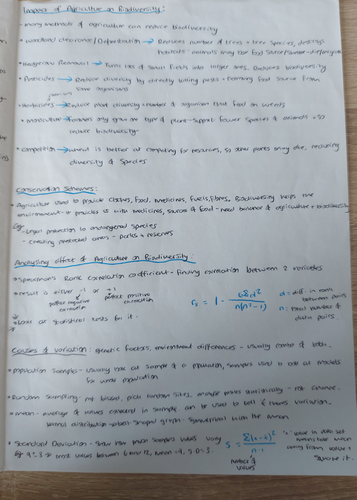 Impact of Agriculture on Biodiversity:
• many methods of agriculture can reduce biodiversity
• woodland clearance / Deforestation → Reduces number of trees + tree species, destroys
habitats - animals may lose food source /
• Hedgerow Removal → Turns lots of small fields into larger ones. Reduces biodiversity
• Pesticides → Reduce diversity by directly killing pests + removing food source from
some organisms
• Herbicides → Reduce plant diversity + number of organisms that feed on weeds
• Monoculture → Farmers only grow one type of plant - support fewer species of animals + so
reduce biodiversity.
• competition → is better at competing for resources, so other plants may die, reducing
diversity of species
Conservation Schemes:
• Agriculture used to provide clothes, food, medicines, fuels, fibres, Biodiversity helps the
environment + provides us with medicines, source of food - need balance of agriculture + biodiversity
Eg - legal protection to endangered species
- creating protected areas - parks + reserves
Analysing effect of Agriculture on Biodiversity:
• Spearman's Rank correlation coefficient - finding correlation between 2 variables
• result is either -1 or +1
perfect negative correlation
perfect positive correlation
rs = 1 - 6Σd² / n(n²-1)
d = diff in rank between pairs
n = total number of data pairs.
• look at statistical tests for it -
Causes of Variation: genetic factors, environment differences - usually combo of both.
• population samples - usually look at sample of a population, samples used to act as models
for whole population
• Random Sampling - not biased, pick random sites, analyse results statistically - not chance.
• mean - average of values collected in sample, can be used to tell if varies variation,
normal distribution - bell-shaped graph - symmetrical with the mean.
• Standard Deviation - Show how much samples values vary
S = √ Σ(x-x̄)² / n-1
number of values
Eg 9 ± 3 → most values between 6 and 12, mean = 9, S.D = 3.